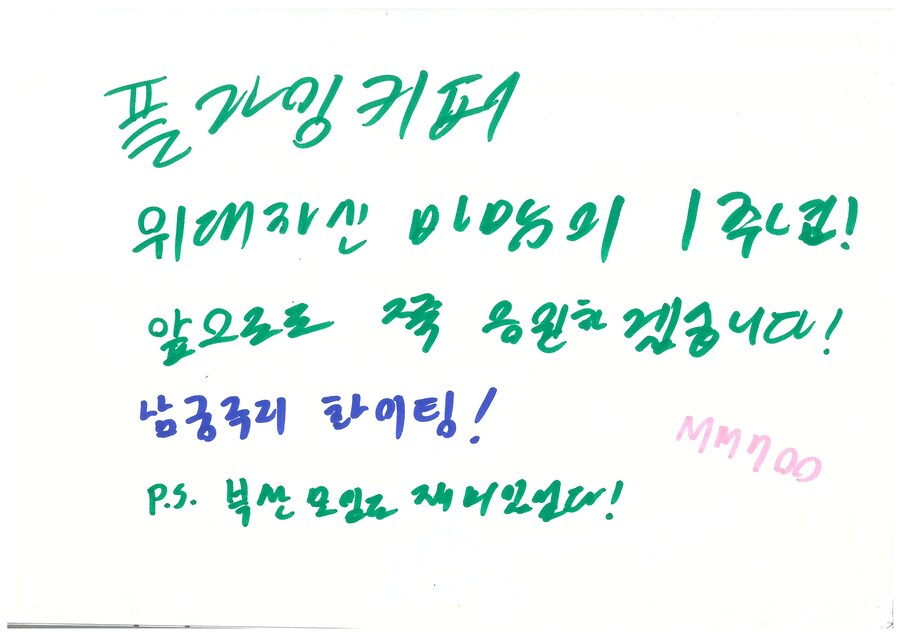 플라밍커퍼
위대자신 마망의 1주년!
앞으로도 쭉 응원하겠습니다!
남궁루리 화이팅!
MM700
P.S. 부산 모임도 재미있었다!